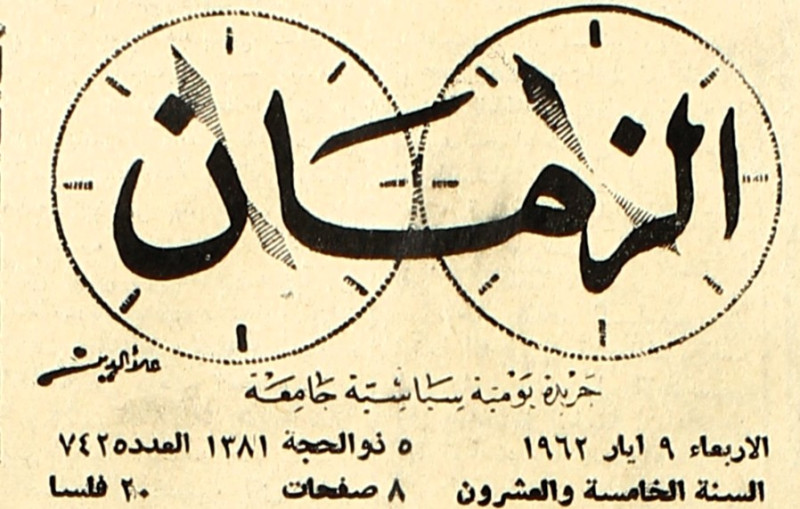 الزمان
علاءالدين
جريدة يومية سياسية جامعة
الاربعاء ٩ ايار ١٩٦٢ ٥ ذوالحجة ١٣٨١ العدد ٧٤٢٥
السنة الخامسة والعشرون ٨ صفحات ٢٠ فلسا